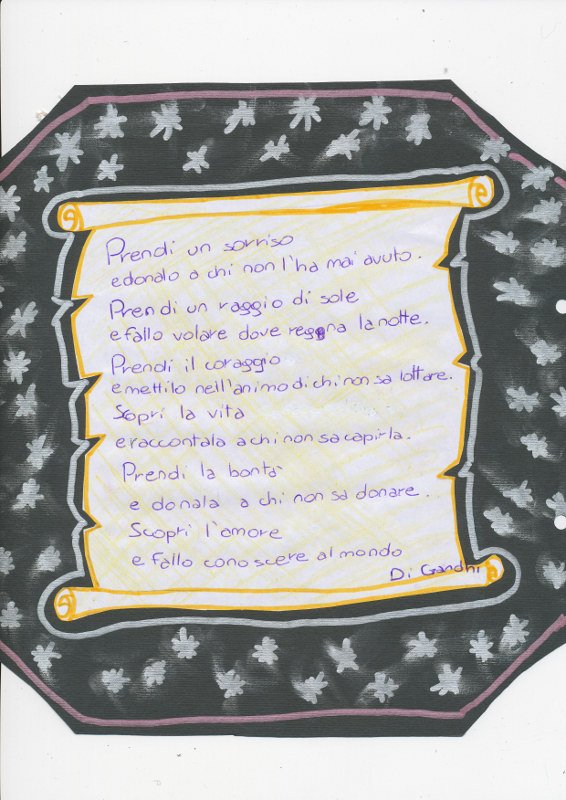 Prendi un sorriso
e donalo a chi non l'ha mai avuto.
Prendi un raggio di sole
e fallo volare dove regna la notte.
Prendi il coraggio
e mettilo nell'animo di chi non sa lottare.
Scopri la vita
e raccontala a chi non sa capirla.
Prendi la bontà
e donala a chi non sa donare.
Scopri l'amore
e fallo conoscere al mondo
Di Gandhi